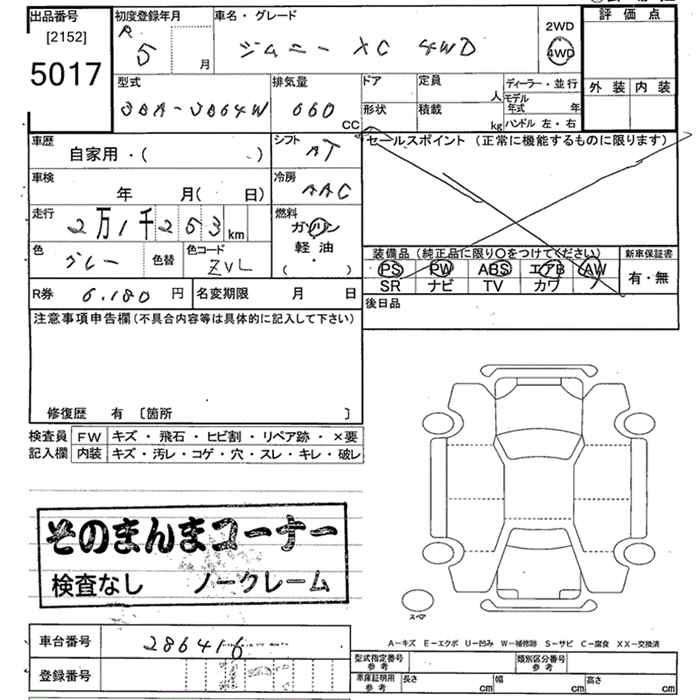 出品番号 初度登録年月 車名・グレード 評価点
[2152] R 5 月 ジムニー XC 4WD 2WD
5017 4WD
型式 排気量 ドア 定員 人 ディーラー・並行 外装 内装
3BA-JB64W 660 CC 形状 積載 kg モデル年式 年
ハンドル 左・右
車歴 自家用・( ) シフト AT セールスポイント (正常に機能するものに限ります)
車検 年 月( 日) 冷房 AAC
走行 2万1千253km 燃料 ガソリン
軽油
( )
色 グレー 色替 色コード ZVL 装備品(純正品に限り○をつけてください) 新車保証書
PS PW ABS エアB AW 有・無
R券 6.180 円 名変期限 月 日 SR ナビ TV カワ
後日品
注意事項申告欄(不具合内容等は具体的に記入して下さい)
修復歴 有 〔箇所 〕
検査員 FW キズ・飛石・ヒビ割・リペア跡・×要
記入欄 内装 キズ・汚レ・コゲ・穴・スレ・キレ・破レ
そのまんまコーナー
検査なし ノークレーム
スペア
A−キズ E−エクボ U−凹み W−補修跡 S−サビ C−腐食 XX−交換済
車台番号 286416
登録番号
型式指定番号 参考 類別区分番号 参考
車庫証明用 参考 長さ cm 幅 cm 高さ cm